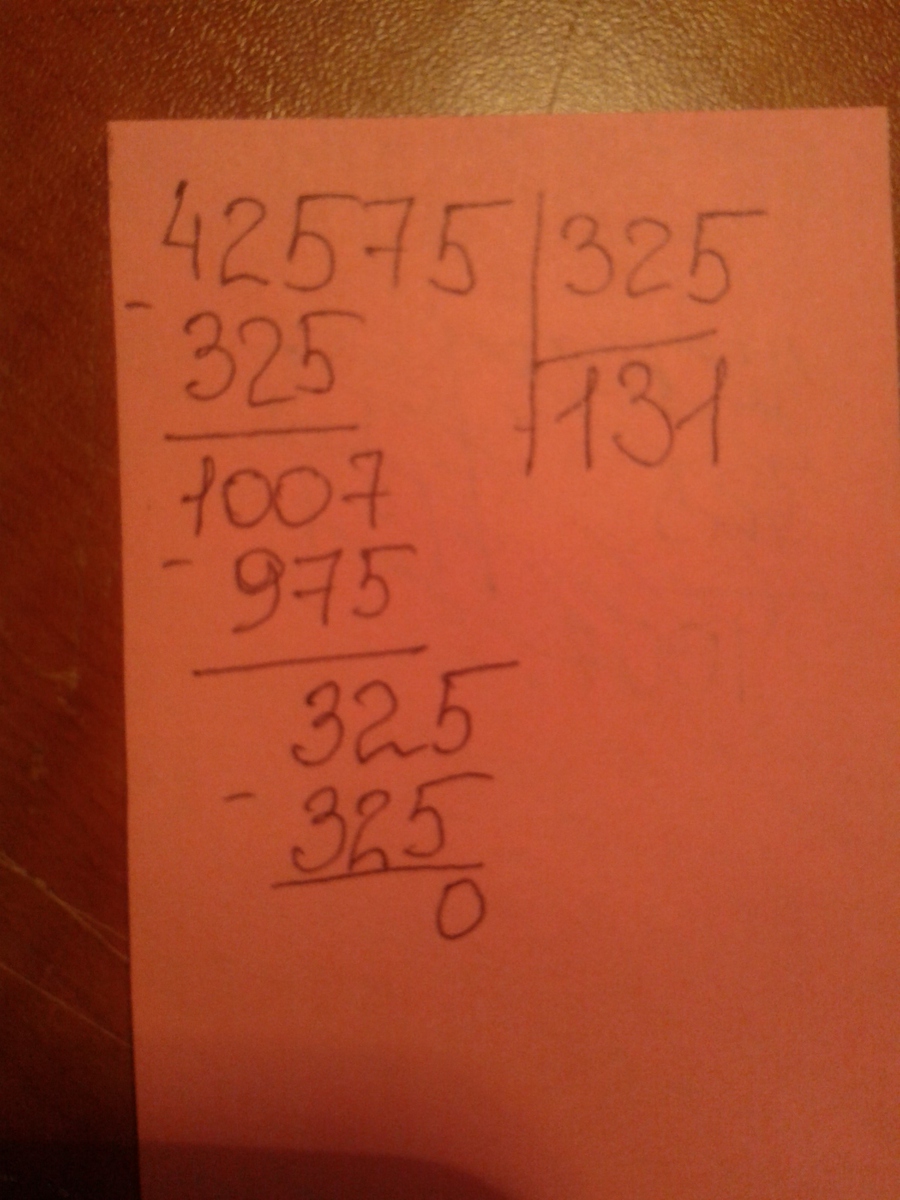 42575 325
- 325 131
1007
- 975
325
- 325
0